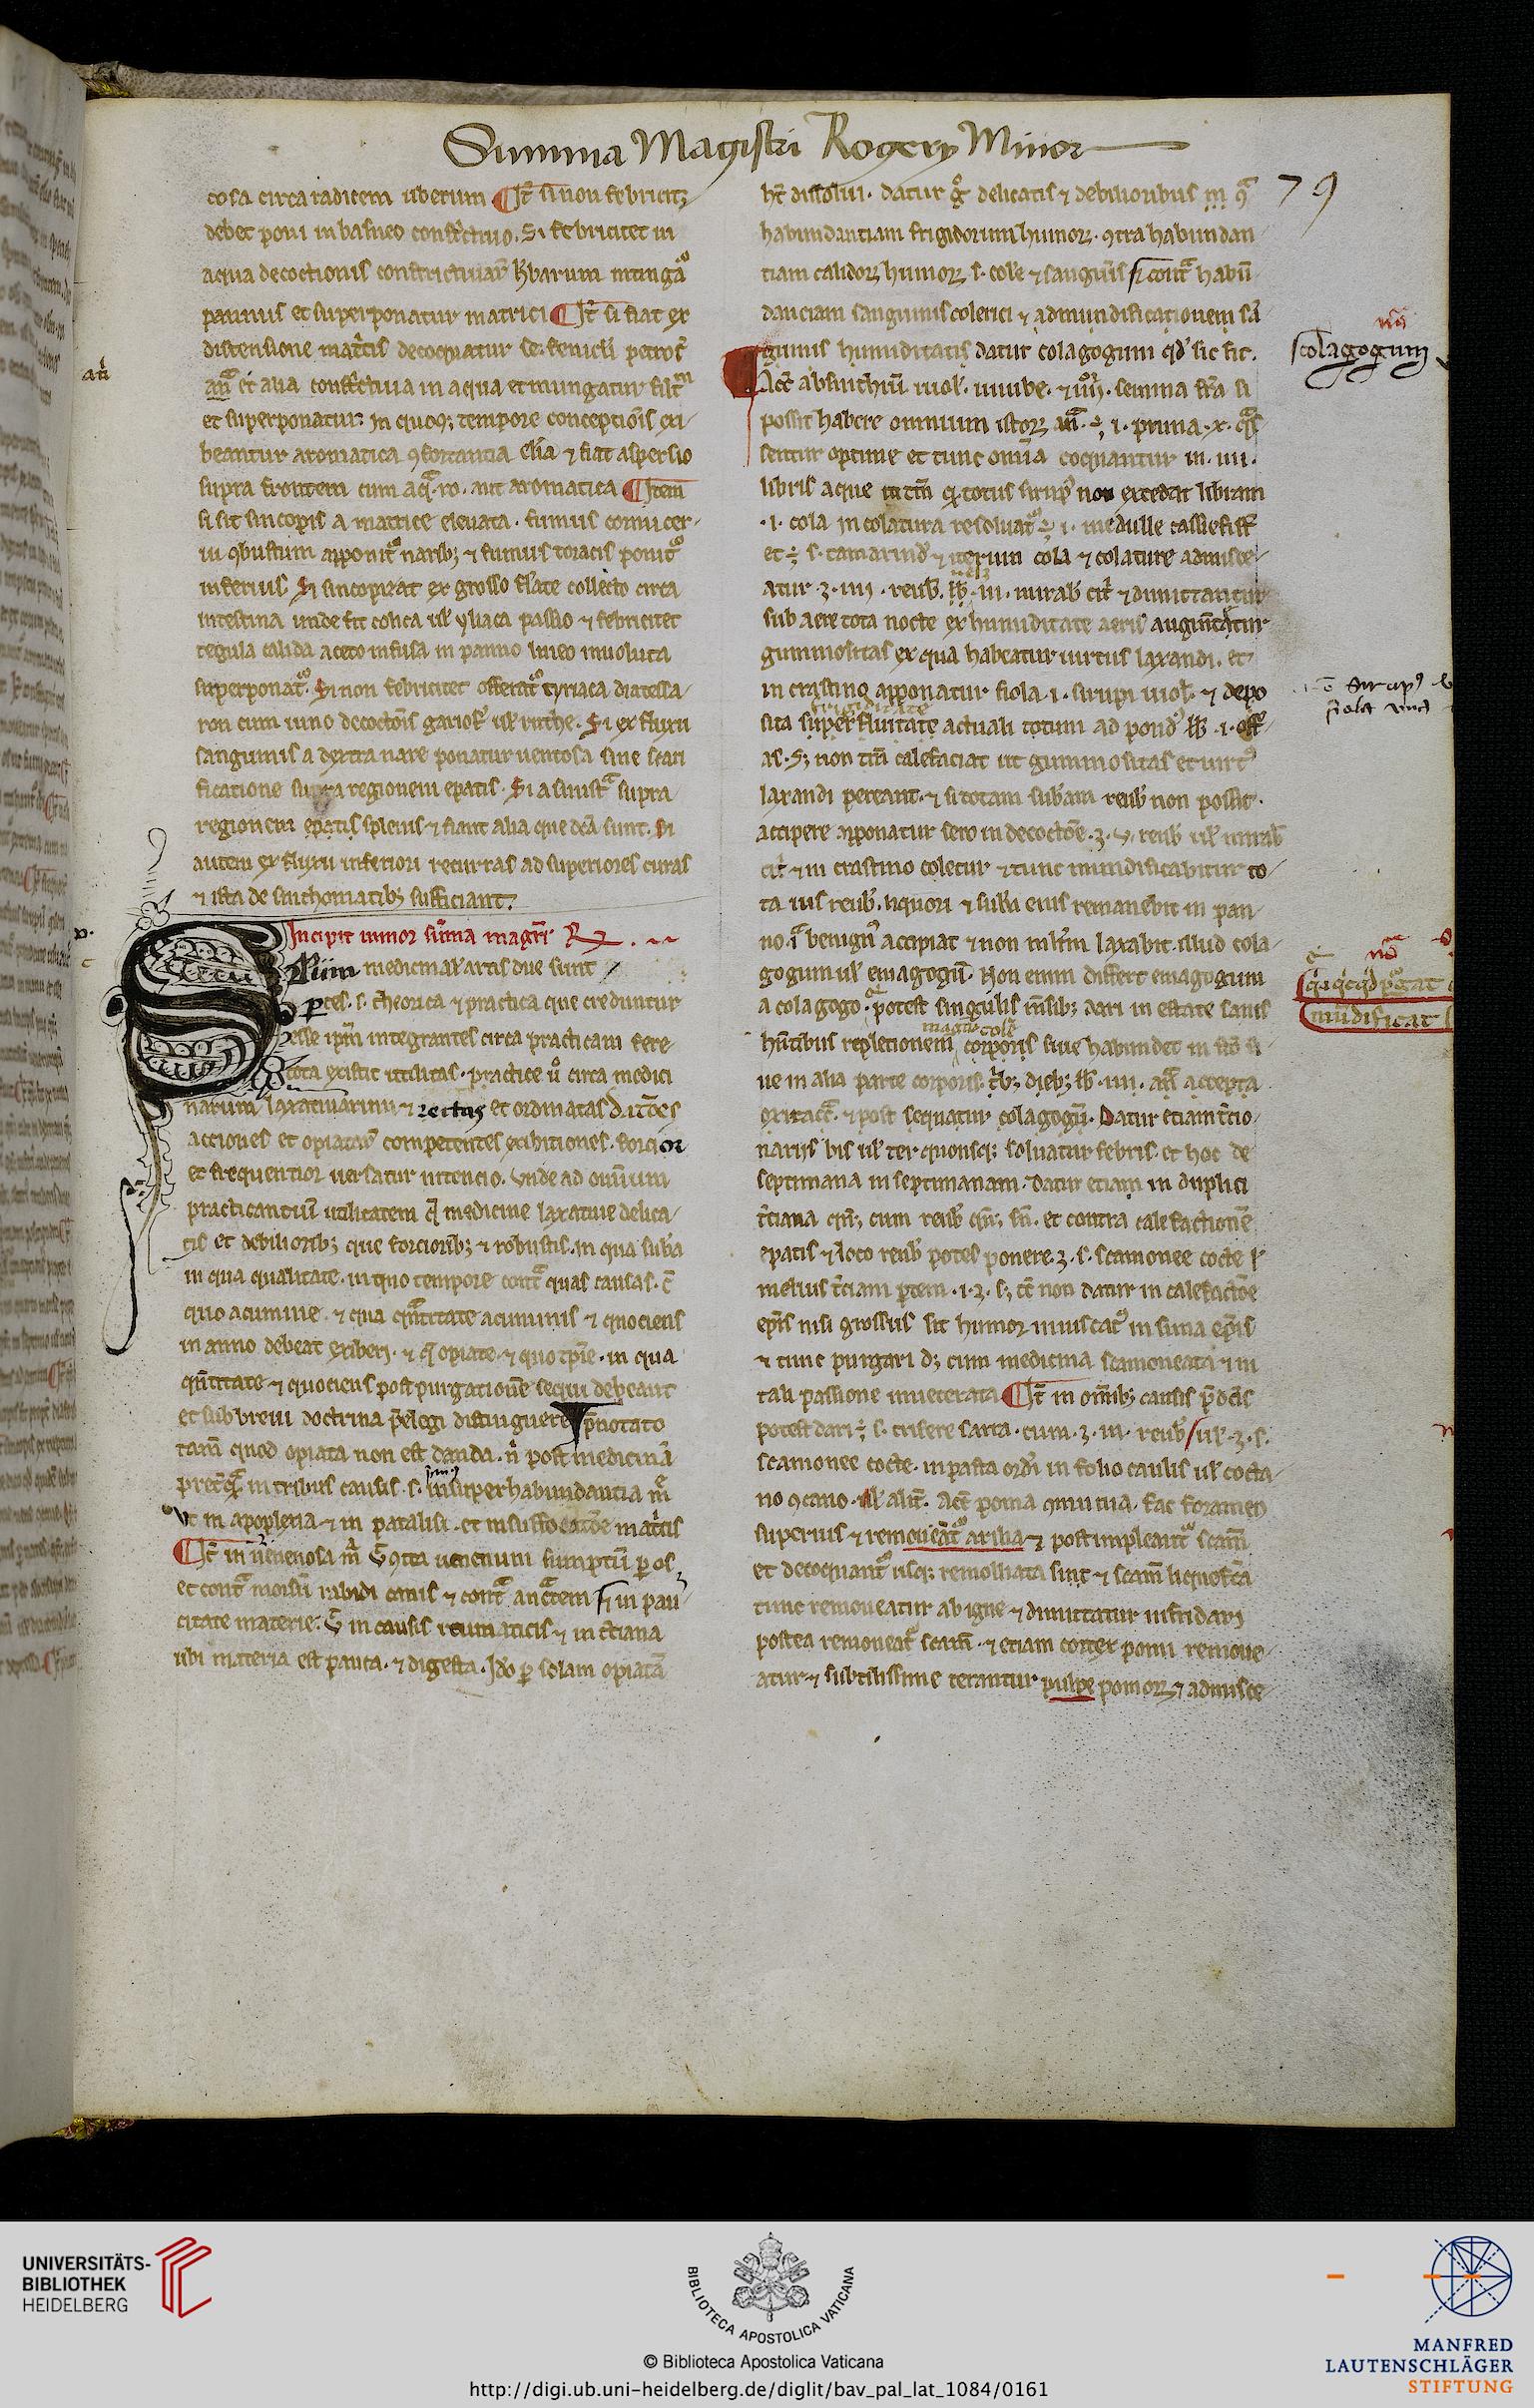 Summa Magistri Rogery Minor
79
cosa circa radicem uberum ¶ It̄ si non febricitꝫ
debet poni in balneo constrictiuo. Si febricitet in
aqua decoctionis constrictiuaꝝ h̓barum intingat᷑
pannus et superponatur matrici ¶ It̄ si fiat ex
distensione mat̓cis decoquatur se. feniculi petros̄
an̄ et alia in aqua et inungatur
et superponatur. In quoqꝫ tempore conceptiōis exi
beantur aromatica ꝯfortancia elīa ⁊ fiat aspersio
supra frontem cum aq̄ ro. aut aromatica ¶ Item
si sit sincopis a matrice eleuata. fumus cornu cer-
ui ꝯbustum apponit᷑ naribꝫ ⁊ fumus toracis ponit᷑
inferius. Si sincopizat ex grosso flate collecto circa
intestina unde fit colica ul̓ yliaca passio ⁊ febricitet
tegula calida aceto infusa in panno lineo inuoluta
superponat᷑. Si non febricitet offerat᷑ tyriaca diatessa-
ron cum uino decoctōis gariof̄ ul̓ ruthe. Si ex fluxu
sanguinis a dextra nare ponatur uentosa sine scari
ficatione supra regionem epatis. Si a sinist̄ supra
regionem epatis splenis ⁊ fiant alia que dc̄a sunt. Si
autem ex fluxu inferiori recurras ad superiores curas
⁊ ista de sinthomatibꝫ sufficiant.
Incipit minor sūma magr̄i R.
Sium medicinal̓ artis due sunt
ꝑtes. s. theorica ⁊ practica que creduntur
esse ip̄m integrantes circa practicam fere
tota existit utilitas. practice u̓ circa medici
narum laxatiuarum ⁊ rectas et ordinatas
acciones et opiataꝝ competentes exibitiones. forcior
et frequentior uersatur intencio. Unde ad omnium
practicantiū utilitatem q̄ medicine laxatiue delica-
tis et debilioribꝫ que forcioribꝫ ⁊ robustis. in qua sub̄a
in qua qualitate. in quo tempore cont̄ quas causas. c̄
quo acumine. ⁊ qua qn̄titate acuminis ⁊ quociens
in anno debeat exiberi. ⁊ q̄ opiate ⁊ quo tp̄re. in qua
qn̄titate ⁊ quociens post purgationē sequi debeant
et sub breui doctrina p̄elegi distinguere p̄notato
tam̄ quod opiata non est danda. n̄ post medicinā
in tribus causis. s. in superhabundantia
ut in apoplexia ⁊ in paralisi. et in suffocatōe mat̓cis
¶ It̄ in uenenosa m̄ ꝯtra uenenum sumptū ꝑ os
et cont̄ morsū rabidi canis ⁊ cont̄ in pau
citate materie. in causis reumaticis ⁊ in t̓ciana
ubi materia est pauca. ⁊ digesta. Ido ꝑ solam opiatā
ht̄ dissolui. datur g̊ delicatis ⁊ debilioribus
habundantiam frigidorum humoꝝ. ꝯtra habundan
tiam calidoꝝ humoꝝ s. cole ⁊ sanguīs s. cont̄ habū
danciam sanguinis colerici ⁊ ad mundificationem sā
guinis humiditatis datur colagogum qd̓ sic fit.
Acc̄ absinthiū uiol. iuiube. semina
possit habere omnium istoꝝ an̄. ℥. i. pruna. x.
sentur optime et tunc omīa coquantur in. iiii.
libris aque in tm̄ ꝙ totus sirupꝰ non excedat libram
.i. cola in colatura resoluat᷑ ℥. i. medulle cassiefisł
et ℥ s. tamarind̓ ⁊ iterum cola ⁊ colature admisce-
atur ʒ. iiii. reub̄. ⁊ dimittantur
sub aere tota nocte ex humiditate aeris augmētatur
gummositas ex qua habeatur uirtus laxandi. et
in crastino apponatur fiola .i. sirupi uiol̄. ⁊ depo
frigiditate
sita superfluitate actuali totum ad pond̓
as. Sꝫ non tm̄ calefaciat ut gummositas et uirtꝰ
laxandi pereant. ⁊ si totam sub̄am reub̄ non possit.
accipere apponatur sero in decoctōe. ʒ. v. reub̄ ul̓ mirab̄
⁊ in crastino coletur ⁊ tunc mundificabitur to-
ta uis reub̄. liquori ⁊ sub̄a eius remanebit in pan-
no. benignꝰ accipiat ⁊ non laxabit. illud cola-
gogum ul̓ emagogū. Non enim differt emagogum
a colagogo. potest singulis m̄sibꝫ dari in estate sanis
hn̄tibus repletionem corporis siue habundet in
ue in alia parte corporis. accepta
oxizacc̄. ⁊ post sequatur colagogū. Datur etiam t̓cio-
narijs bis ul̓ ter quousqꝫ soluatur febris. et hoc de
septimana in septimanam. datur etiam in duplici
t̓ciana cum reub̄ et contra calefactionē
epatis ⁊ loco reub̄ potes ponere ʒ. s. scamonee cocte
melius t̓ciam ꝑtem .i. ʒ. sꝫ non datur in calefactōe
ep̄is nisi grossus sit humor inuiscatꝰ in sima ep̄is
⁊ tunc purgari dꝫ cum medicina scamoneata ⁊ in
tali passione inueterata ¶ It̄ in om̄ibꝫ causis p̄dc̄is
potest dari ℥. s. cum. ʒ. iii. reub̄ / ul̓. ʒ. s.
scamonee cocte. in pasta ordi in folio caulis ul̓ cocta-
no ꝯcano. Ul̓ alit̓. Acc̄ poma fac foramen
superius ⁊ remoueāt᷑ ariba ⁊ post impleant᷑ scam̄
et decoquant᷑ usqꝫ remollita sint ⁊ scam̄ liquefc̄a
tunc remoueatur ab igne ⁊ dimittatur infridari
postea remoueat᷑ scam̄. ⁊ etiam cortex pomi remoue-
atur ⁊ subtilissime terantur pulpe pomoꝝ ⁊ admisce-
nō
scolagogum
sirupꝰ
fiola una
nō
purgat
mūdificat
UNIVERSITÄTS-
BIBLIOTHEK
HEIDELBERG
BIBLIOTECA APOSTOLICA VATICANA
© Biblioteca Apostolica Vaticana
http://digi.ub.uni-heidelberg.de/diglit/bav_pal_lat_1084/0161
MANFRED
LAUTENSCHLÄGER
STIFTUNG